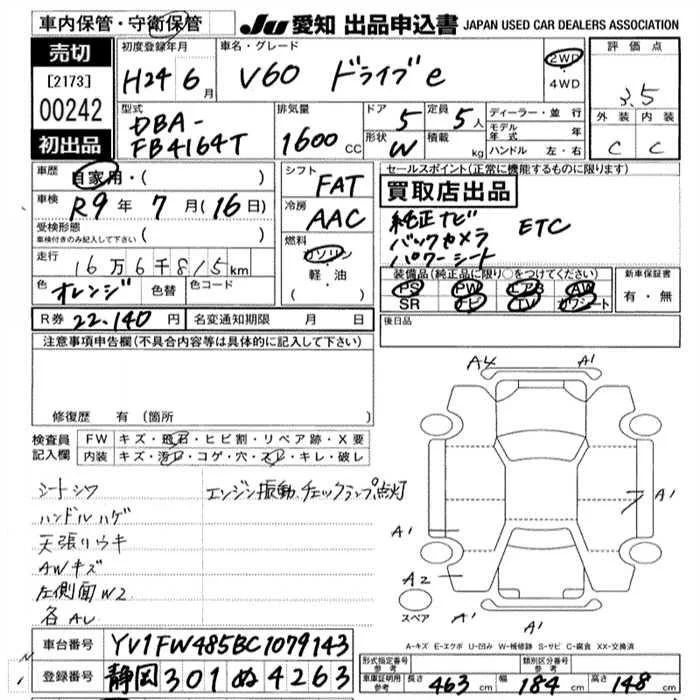 車内保管・守衛保管
JU 愛知 出品申込書 JAPAN USED CAR DEALERS ASSOCIATION
売切
[2173]
00242
初出品
初度登録年月
H24 6月
車名・グレード
V60 ドライブe
2WD
4WD
評価点
3.5
外装 内装
C C
型式
DBA-
FB4164T
排気量
1600 CC
ドア 5
形状 W
定員 5人
積載 kg
ディーラー・並行
モデル年式 年
ハンドル 左・右
車歴 自家用・( )
車検 R9年 7月(16日)
受検形態
車検付きのみ記入して下さい ( )
走行 16万6千815km
色 オレンジ 色替 色コード
シフト FAT
冷房 AAC
燃料
ガソリン
軽・油
( )
セールスポイント(正常に機能するものに限ります)
買取店出品
純正ナビ ETC
バックカメラ
パワーシート
装備品(純正品に限り○をつけてください)
PS PW エアB AW
SR ナビ TV カワシート
新車保証書
有・無
R券 22,140円 名変通知期限 月 日
後日品
注意事項申告欄(不具合内容等は具体的に記入して下さい)
修復歴 有 (箇所 )
検査員記入欄
FW キズ・飛石・ヒビ割・リペア跡・X要
内装 キズ・汚レ・コゲ・穴・スレ・キレ・破レ
シートシワ エンジン振動、チェックランプ点灯
ハンドルハゲ
天張リウキ
AWキズ
左側面W2
各AU
A4 A1
A1
A1
A2
A1 A1
スペア
A-キズ E-エクボ U-凹み W-補修跡 S-サビ C-腐食 XX-交換済
車台番号 YV1FW485BC1079143
登録番号 静岡 301 ぬ 4263
形式指定番号 参考 類別区分番号 参考
車庫証明用 参考 長さ 463 cm 幅 184 cm 高さ 148 cm